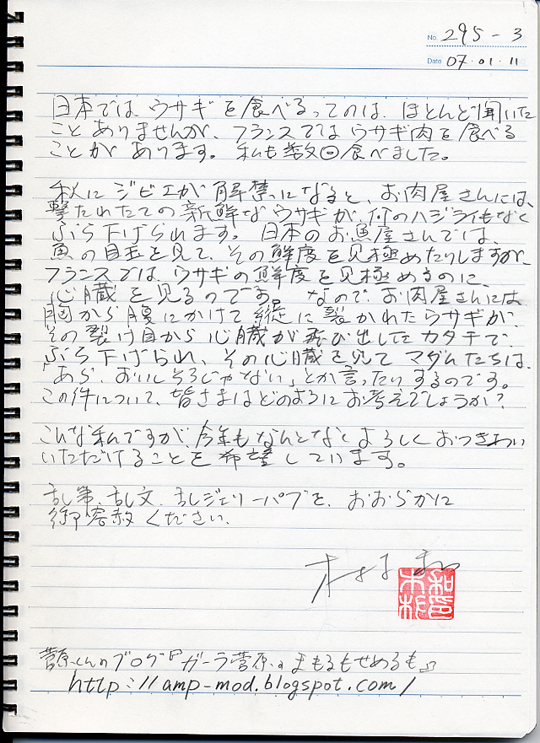 No. 295-3
Date 07.01.11
日本では ウサギを食べるってのは、ほとんど聞いた
ことありませんが、フランスではウサギ肉を食べる
ことがあります。私も数回食べました。
秋にジビエが解禁になると、お肉屋さんには、
撃たれたての新鮮なウサギが、何のハジライもなく
ぶら下げられます。日本のお魚屋さんでは、
魚の目玉を見て、その鮮度を見極めたりしますが、
フランスでは、ウサギの鮮度を見極めるのに、
心臓を見るのです。なので、お肉屋さんには
胸から腹にかけて縦に裂かれたウサギが、
その裂け目から心臓が飛び出したカタチで、
ぶら下げられ、その心臓を見て マダムたちは、
「あら、おいしそうじゃない」とか言ったりするのです。
この件について、皆さまはどのようにお考えでしょうか?
こんな私ですが、今年もなんとなくよろしくおつきあい
いただけることを希望しています。
乱筆、乱文、乱ジェリーパブを、おおらかに
御容赦ください。
木村 和
菅原くんのブログ『ガーラ菅原のまもるもせめるも』
http://amp-mod.blogspot.com/